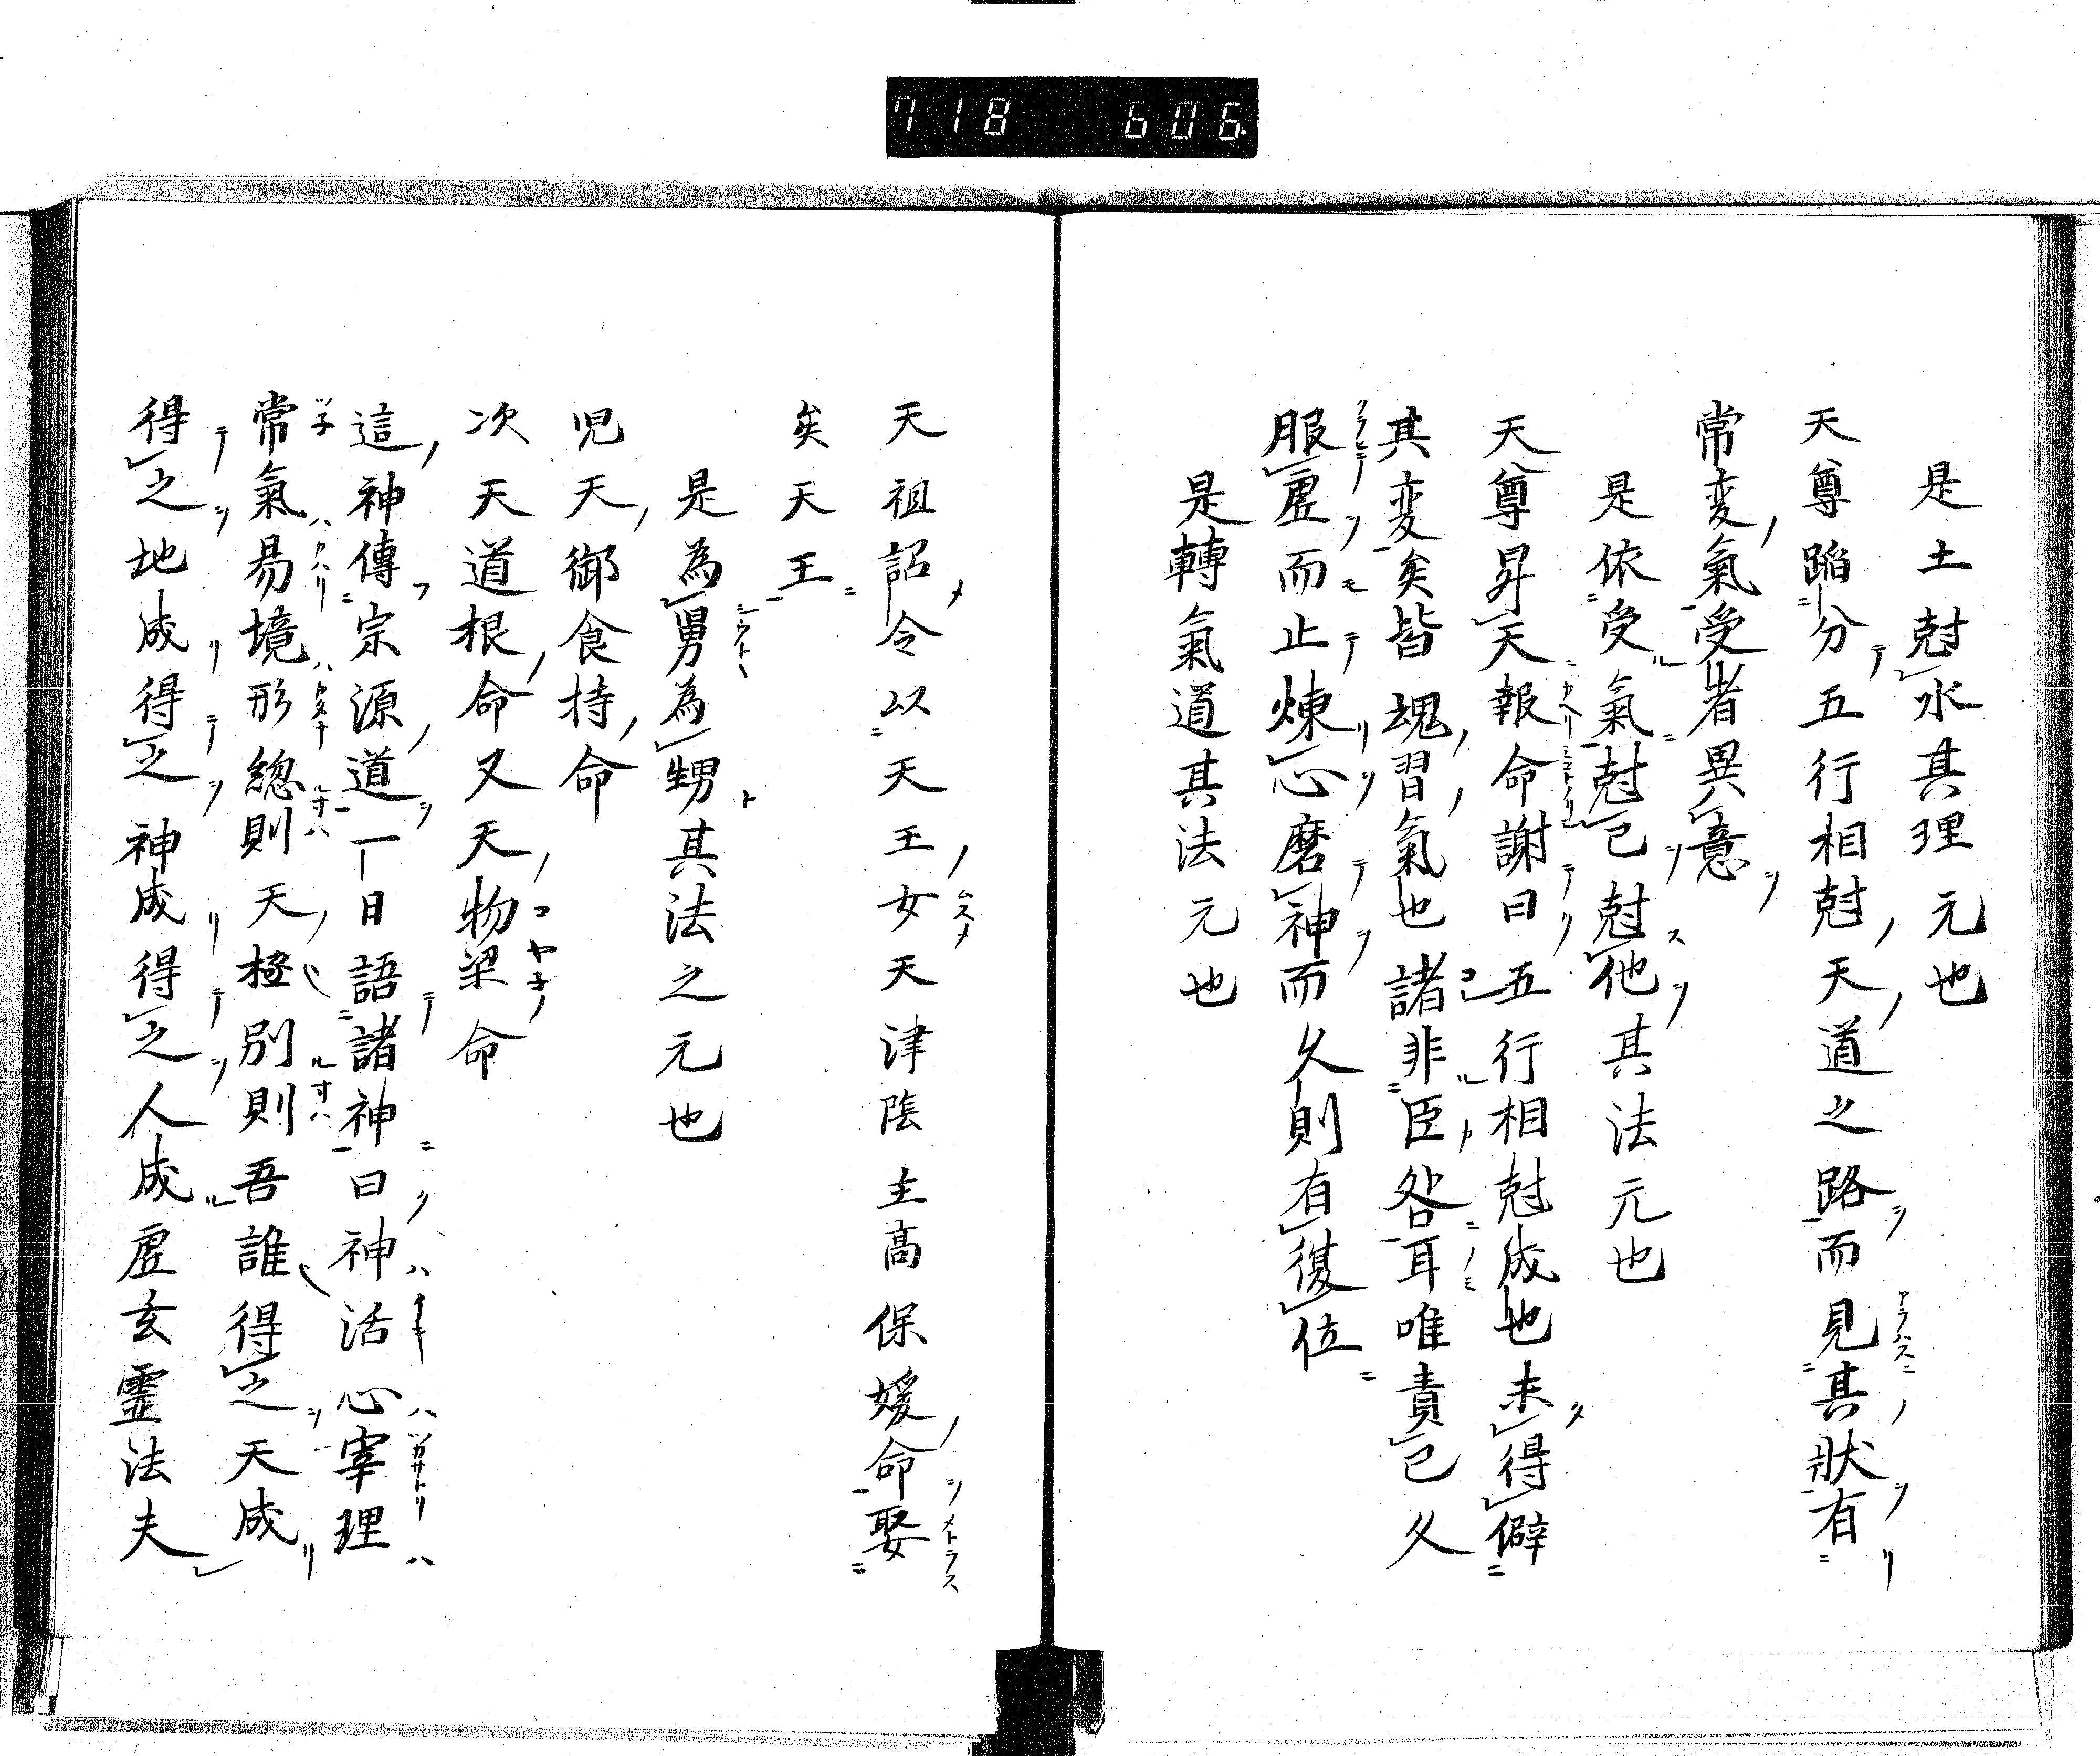 718 606
是土尅水其理元也
天尊蹈分五行相尅天道之路而見其狀有
常変氣受者異意
是依受氣尅己尅他其法元也
天尊昇天報命謝曰五行相尅成也未得僻
其変矣皆塊習氣也諸非臣咎耳唯責己久
服虚而止煉心磨神而久則有復位
是轉氣道其法元也
天祖詔令以天王女天津陰主高保媛命娶
矣天王
是為男為甥其法之元也
児天御食持命
次天道根命又天物梁命
這神傳宗源道一日語諸神曰神活心宰理
常氣易境形總則天極別則吾誰得之天成
得之地成得之神成得之人成虚玄霊法夫